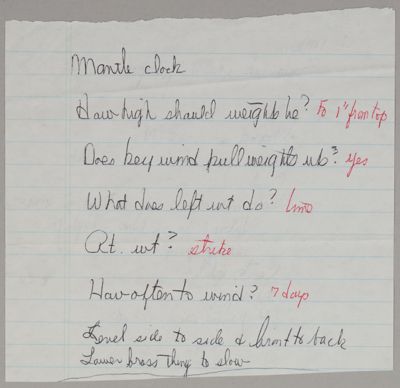 Mantle clock
How high should weights be? To 1" from top
Does key wind pull weights up? yes
What does left wt do? time
Rt. wt? strike
How often to wind? 7 days
Level side to side & front to back
Lower brass thing to slow